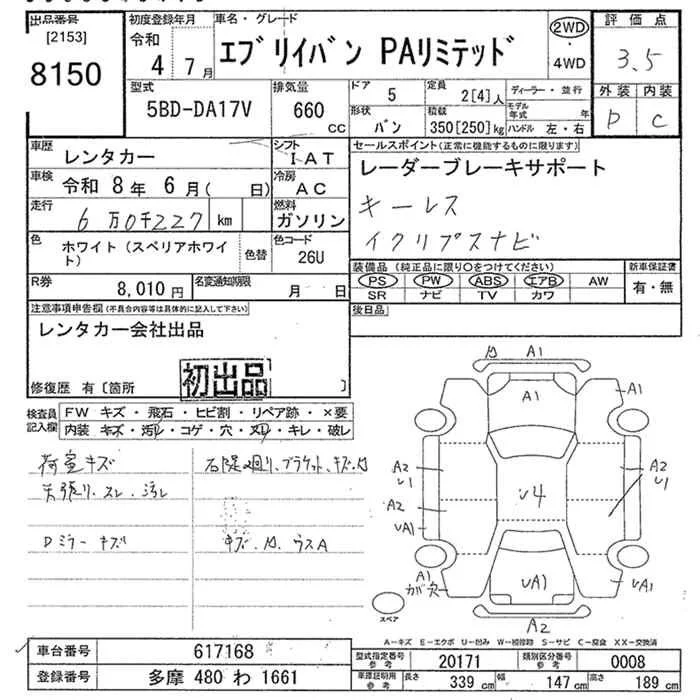 出品番号
[2153]
8150
初度登録年月
令和
4 7月
車名・グレード
エブリイバン PAリミテッド
2WD
・
4WD
評価点
3.5
外装 内装
D C
型式
5BD-DA17V
排気量
660
CC
ドア
5
定員
2[4]人
形状
バン
積載
350[250]kg
ディーラー・並行
モデル年式 年
ハンドル 左・右
車歴
レンタカー
シフト
IAT
車検
令和 8年 6月( 日)
冷房
AC
走行
6万0千227 km
燃料
ガソリン
色
ホワイト(スペリアホワイト)
色替
色コード
26U
R券
8,010円
名変通知期限
月 日
セールスポイント(正常に機能するものに限ります)
レーダーブレーキサポート
キーレス
イクリプスナビ
装備品(純正品に限り○をつけてください)
PS PW ABS エアB AW
SR ナビ TV カワ
新車保証書
有・無
後日品
注意事項申告欄(不具合内容等は具体的に記入して下さい)
レンタカー会社出品
初出品
修復歴 有〔箇所 〕
検査員記入欄
FW キズ・飛石・ヒビ割・リペア跡・×要
内装 キズ・汚レ・コゲ・穴・ヌリ・キレ・破レ
荷室キズ
天張り、スレ、汚レ
Dミラーキズ
キズ、凹、ウスA
A1
A1
A1
A2
U1
A2
UA1
A1
ガ欠
U4
A2
U1
UA1
UA1
A2
スペア
A-キズ E-エクボ U-凹み W-補修跡 S-サビ C-腐食 XX-交換済
車台番号
617168
登録番号
多摩 480 わ 1661
型式指定番号
参考
20171
類別区分番号
参考
0008
車庫証明用
参考
長さ 339cm 幅 147cm 高さ 189cm